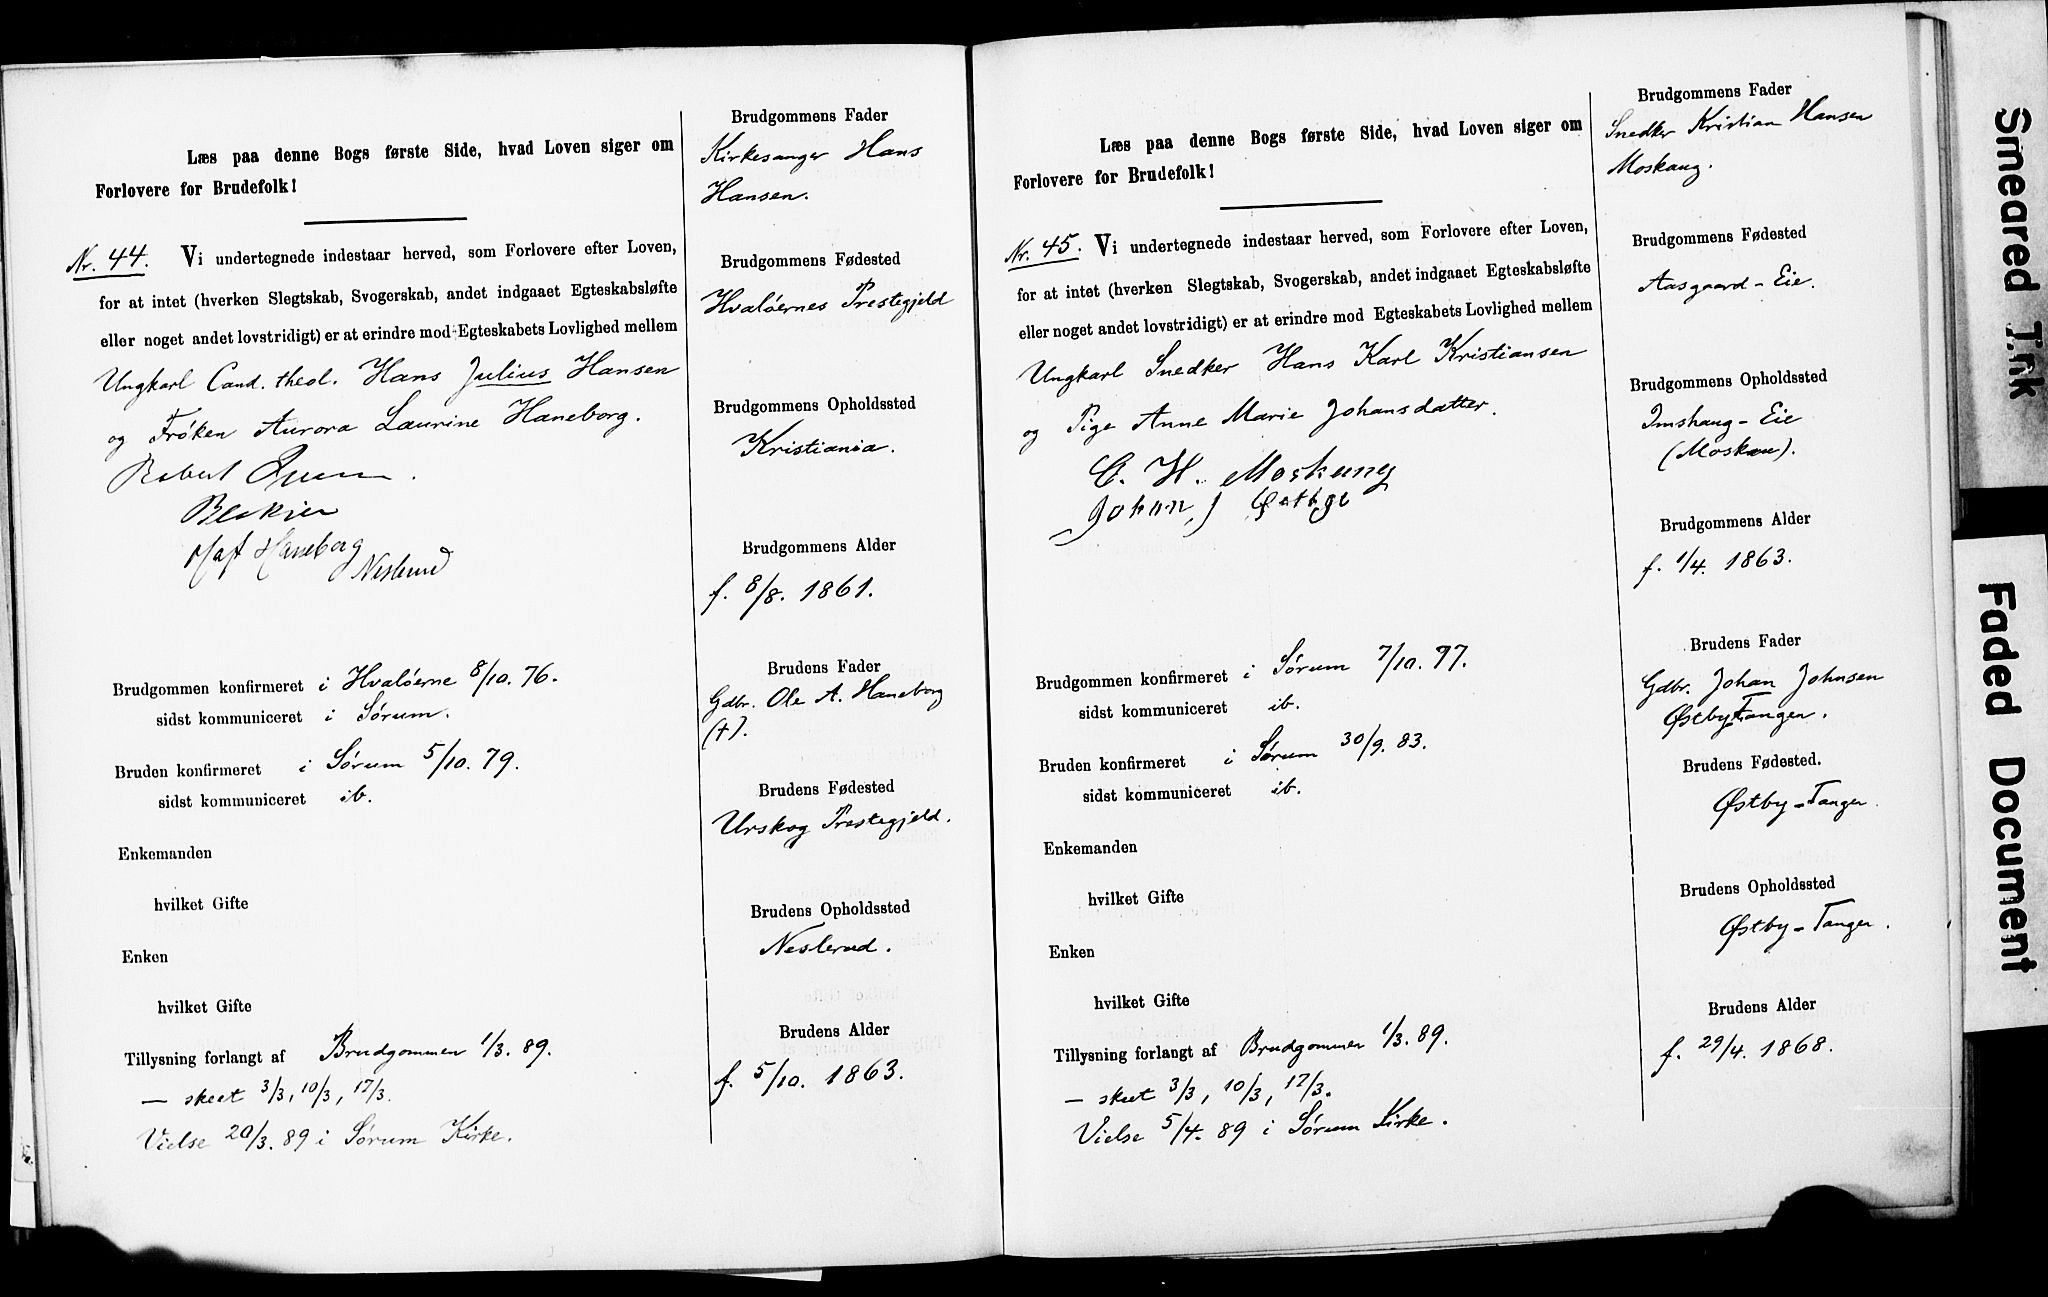 Læs paa denne Bogs første Side, hvad Loven siger om
Forlovere for Brudefolk!
Nr. 44. Vi undertegnede indestaar herved, som Forlovere efter Loven,
for at intet (hverken Slegtskab, Svogerskab, andet indgaaet Egteskabsløfte
eller noget andet lovstridigt) er at erindre mod Egteskabets Lovlighed mellem
Ungkarl Cand. theol. Hans Julius Hansen
og Frøken Aurora Laurine Haneborg.
Robert
Haneborg
Neslerud
Brudgommen konfirmeret i Hvaløerne 8/10. 76.
sidst kommuniceret i Sørum.
Bruden konfirmeret i Sørum 5/10. 79.
sidst kommuniceret ib.
Enkemanden
hvilket Gifte
Enken
hvilket Gifte
Tillysning forlangt af Brudgommen 1/3. 89.
— skeet 3/3, 10/3, 17/3.
Vielse 20/3. 89 i Sørum Kirke.
Brudgommens Fader
Kirkesanger Hans
Hansen.
Brudgommens Fødested
Hvaløernes Prestegjeld
Brudgommens Opholdssted
Kristiania.
Brudgommens Alder
f. 8/8. 1861.
Brudens Fader
Gdbr. Ole A. Haneborg
(†).
Brudens Fødested
Urskog Prestegjeld.
Brudens Opholdssted
Neslerud.
Brudens Alder
f. 5/10. 1863.
Læs paa denne Bogs første Side, hvad Loven siger om
Forlovere for Brudefolk!
Nr. 45. Vi undertegnede indestaar herved, som Forlovere efter Loven,
for at intet (hverken Slegtskab, Svogerskab, andet indgaaet Egteskabsløfte
eller noget andet lovstridigt) er at erindre mod Egteskabets Lovlighed mellem
Ungkarl Snedker Hans Karl Kristiansen
og Pige Anne Marie Johansdatter.
C. H. Moskaug
Johan J
Brudgommen konfirmeret i Sørum 7/10. 77.
sidst kommuniceret ib.
Bruden konfirmeret i Sørum 30/9. 83.
sidst kommuniceret ib.
Enkemanden
hvilket Gifte
Enken
hvilket Gifte
Tillysning forlangt af Brudgommen 1/3. 89.
— skeet 3/3, 10/3, 17/3.
Vielse 5/4. 89 i Sørum Kirke.
Brudgommens Fader
Snedker Kristian Hansen
Moskaug.
Brudgommens Fødested
Aasgaard-Eie.
Brudgommens Opholdssted
Imshaug-Eie
(Moskau).
Brudgommens Alder
f. 1/4. 1863.
Brudens Fader
Gdbr. Johan Johnsen
Østby-Tangen.
Brudens Fødested.
Østby-Tangen.
Brudens Opholdssted
Østby-Tangen.
Brudens Alder
f. 29/4. 1868.
Smeared Ink
Faded Document